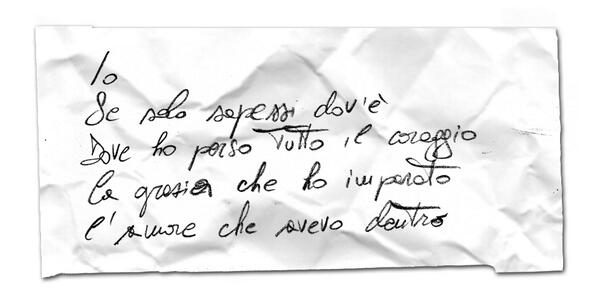 Io
Se solo sapessi dov'è
Dove ho perso tutto il coraggio
la grazia che ho imparato
l'amore che avevo dentro